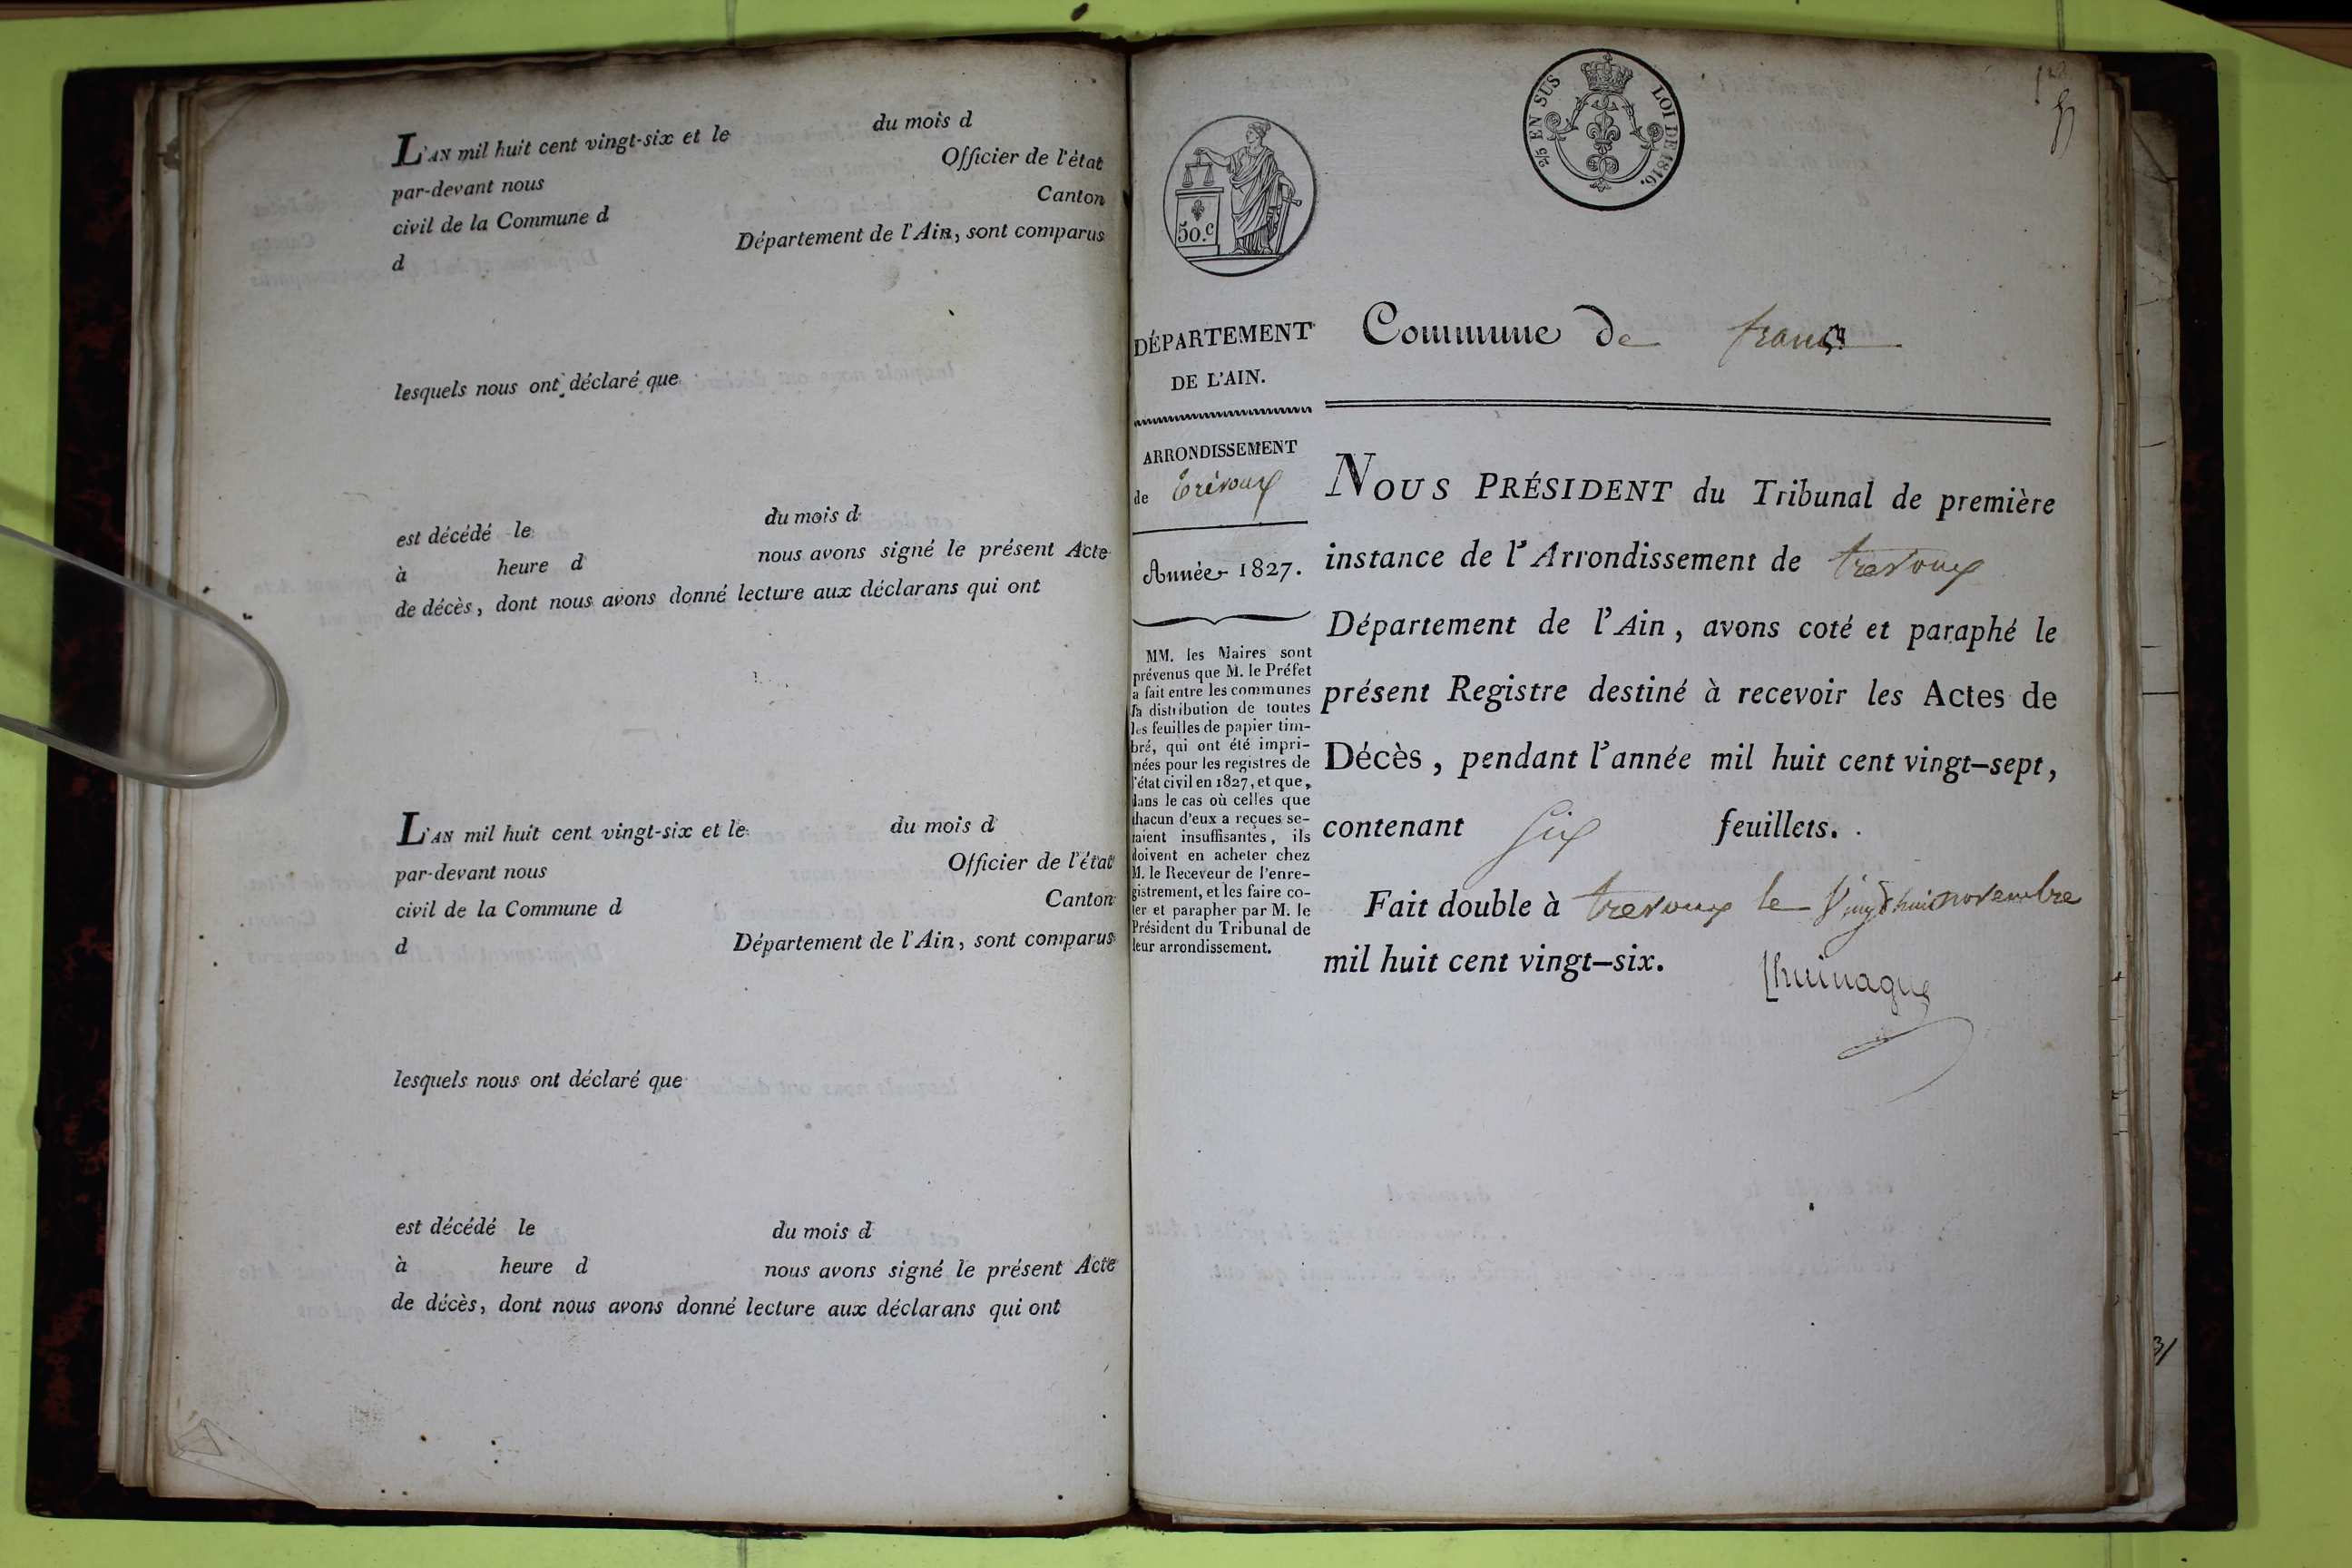 L'AN mil huit cent vingt-six et le du mois d
par-devant nous Officier de l'état
civil de la Commune d Canton
d Département de l'Ain, sont comparus
lesquels nous ont déclaré que
est décédé le du mois d
à heure d nous avons signé le présent Acte
de décès, dont nous avons donné lecture aux déclarans qui ont
L'AN mil huit cent vingt-six et le du mois d
par-devant nous Officier de l'état
civil de la Commune d Canton
d Département de l'Ain, sont comparus
lesquels nous ont déclaré que
est décédé le du mois d
à heure d nous avons signé le présent Acte
de décès, dont nous avons donné lecture aux déclarans qui ont
50.c
2/5 EN SUS LOI DE 1816.
DÉPARTEMENT
DE L'AIN.
ARRONDISSEMENT
de Trévoux
Année 1827.
MM. les Maires sont
prévenus que M. le Préfet
a fait entre les communes
la distribution de toutes
les feuilles de papier tim-
bré, qui ont été impri-
mées pour les registres de
l'état civil en 1827, et que,
dans le cas où celles que
chacun d'eux a reçues se-
raient insuffisantes, ils
doivent en acheter chez
M. le Receveur de l'enre-
gistrement, et les faire co-
ter et parapher par M. le
Président du Tribunal de
leur arrondissement.
Commune de frans
NOUS PRÉSIDENT du Tribunal de première
instance de l'Arrondissement de trevoux
Département de l'Ain, avons coté et paraphé le
présent Registre destiné à recevoir les Actes de
Décès, pendant l'année mil huit cent vingt-sept,
contenant Six feuillets.
Fait double à trevoux le Vingt huit novembre
mil huit cent vingt-six.
31